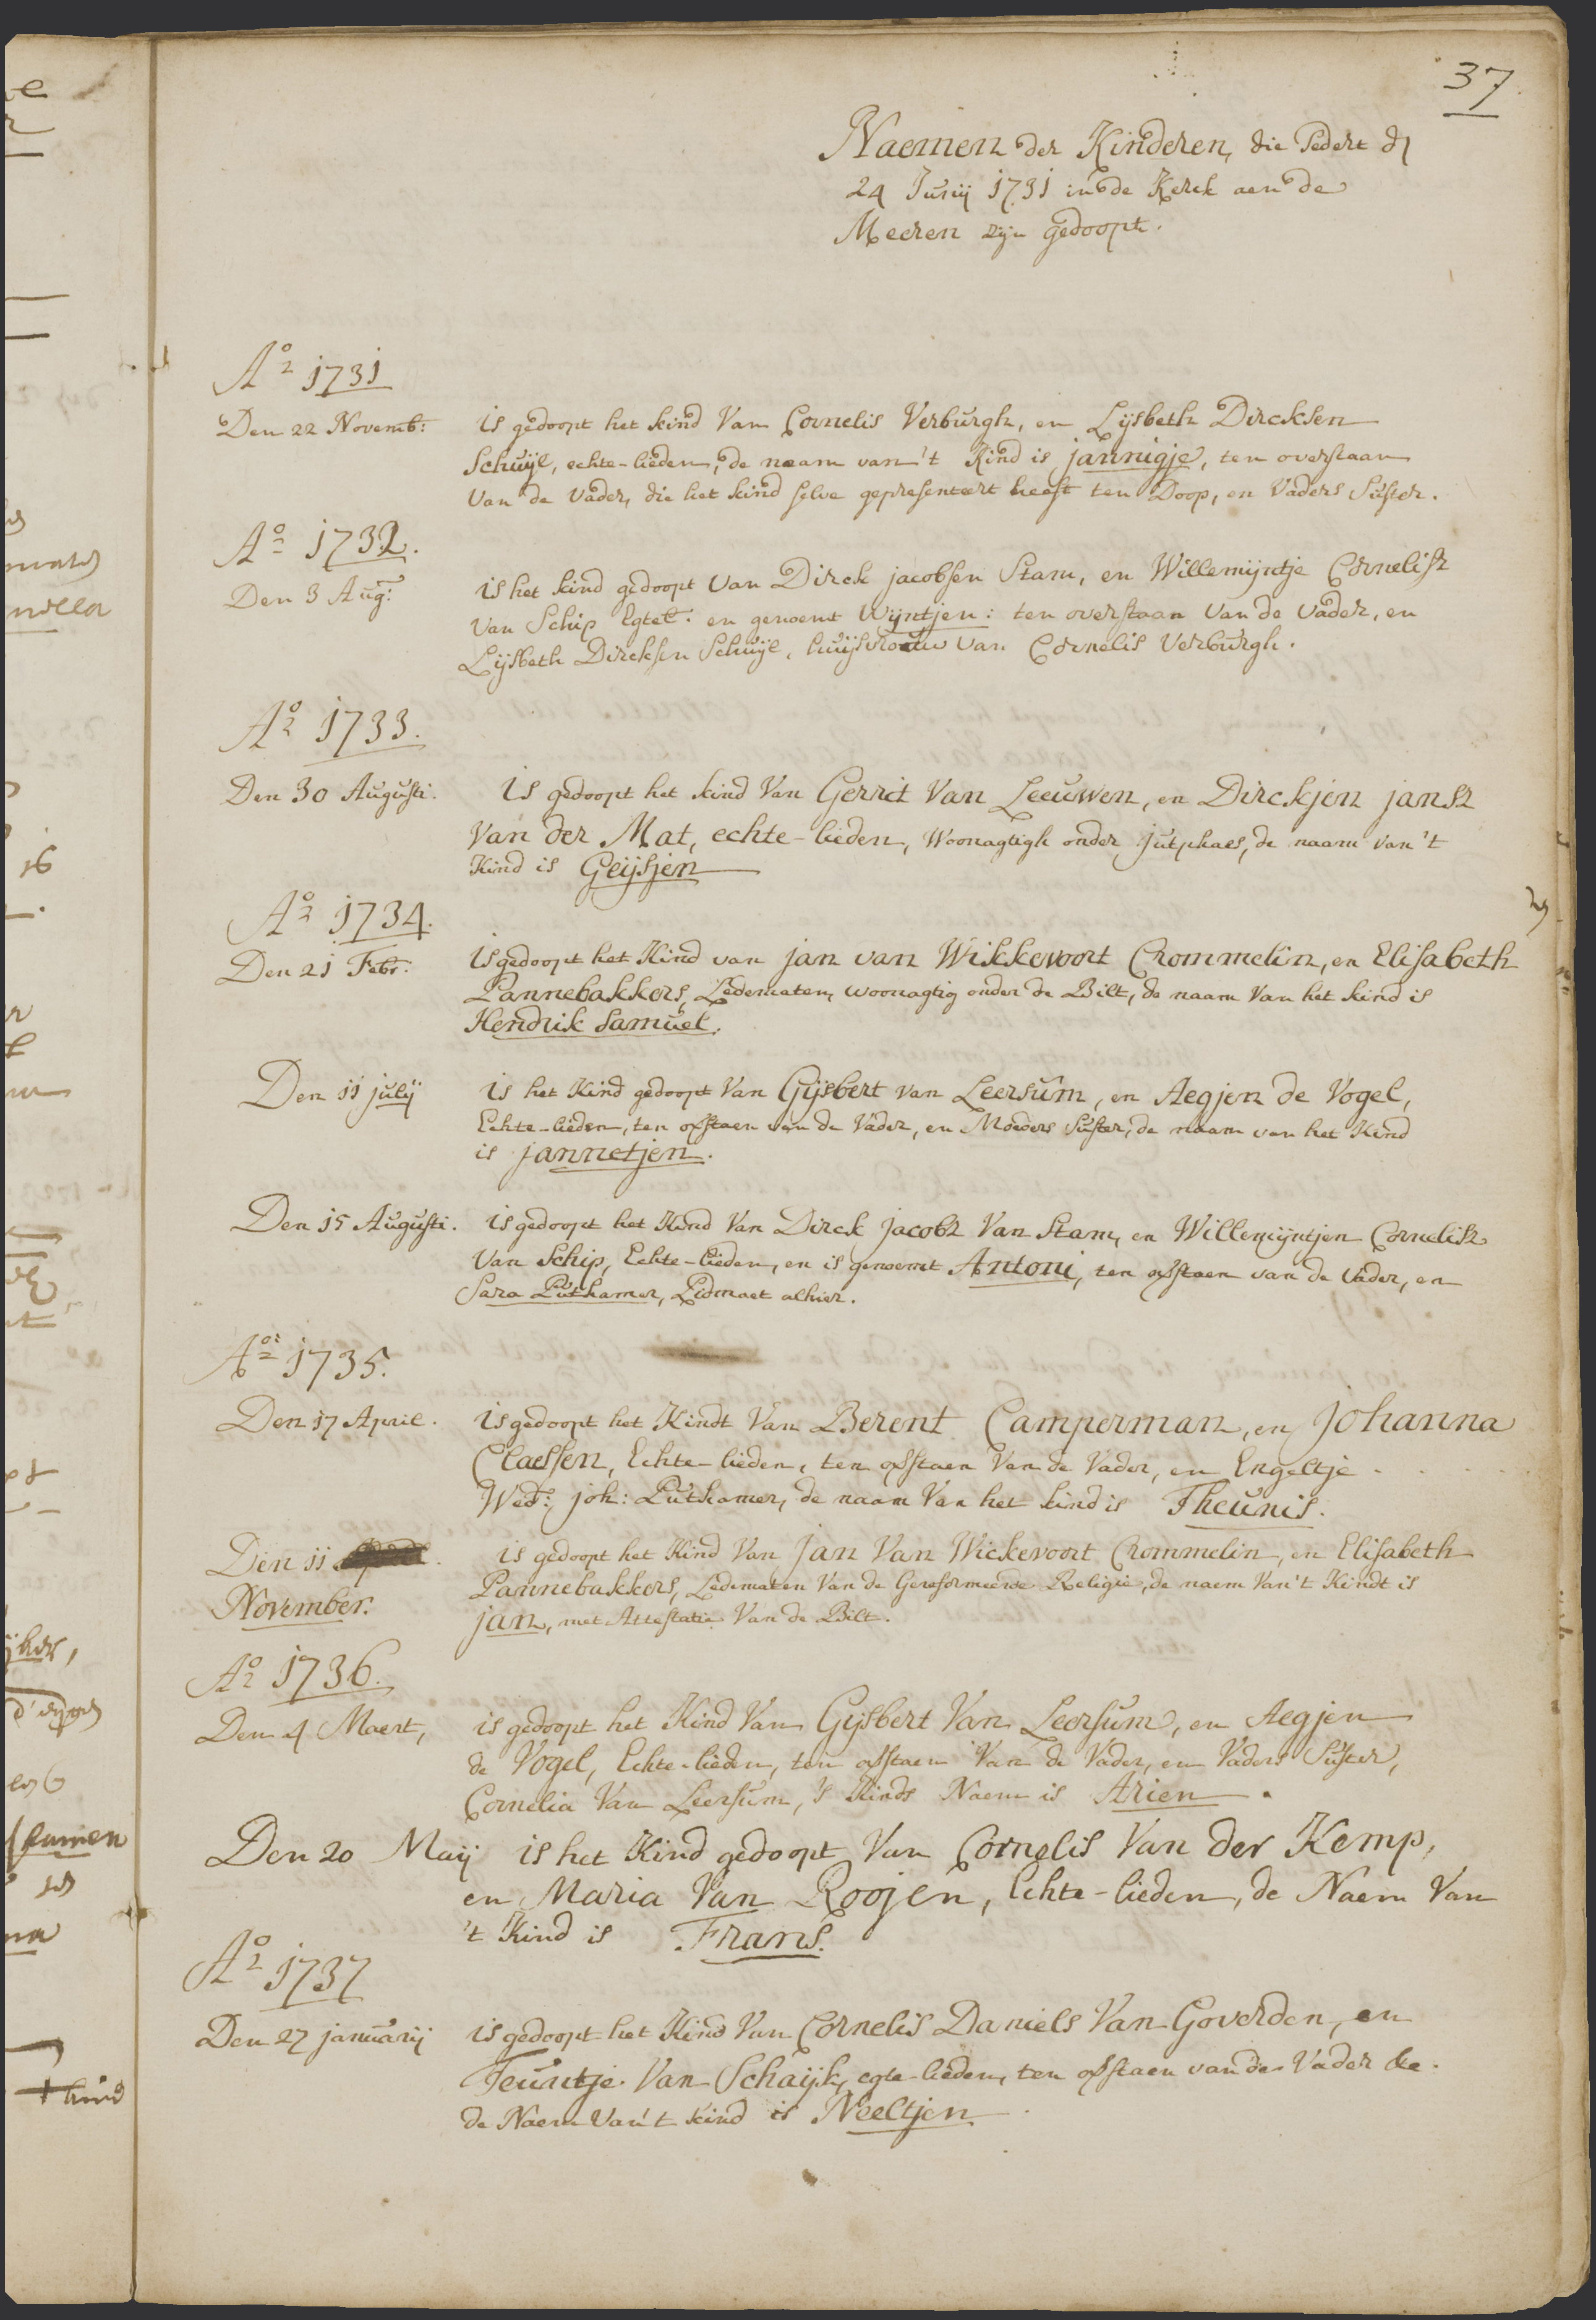 37
Naemen der Kinderen, die sedert d
24 Junij 1731 in de Kerck aen de
Meeren zijn gedoopt.
Ao 1731
Den 22 Novemb: is gedoopt het kind Van Cornelis Verburgh, en Lijsbeth Dircksen
Schuijl, echte-lieden, de naam van 't Kind is jannigje, ten overstaan
Van de Vader, die het kind selve gepresenteert heeft ten Doop, en Vaders Suster.
Ao 1732.
Den 3 Aug: is het kind gedoopt Van Dirck jacobsen Stam, en Willemijntje Cornelisz
Van Schip Egtel. en genoemt Wijntjen: ten overstaan Van de Vader, en
Lijsbeth Dircksen Schuijl, huijsvrouw Van Cornelis Verburgh.
Ao 1733.
Den 30 Augusti. is gedoopt het kind Van Gerrit Van Leeuwen, en Dirckjen jansz
Van der Mat, echte-lieden, Woonagtigh onder jutphaes, de naam van 't
Kind is Geijsjen
Ao 1734.
Den 21 Febr: is gedoopt het Kind van jan van Wikkevoort Crommelin, en Elisabeth
Pannebakkers, Ledematen, woonagtig onder de Bilt, de naam Van het kind is
Hendrik Samuel.
Den 11 julij is het Kind gedoopt Van Gijsbert van Leersum, en Aegjen de Vogel,
Echte-lieden, ten ofstaen van de Vader, en Moeders Suster, de naam van het Kind
is jannetjen.
Den 15 Augusti. is gedoopt het Kind Van Dirck jacobz Van Stam, en Willemijntjen Cornelisz
Van Schip, Echte-lieden, en is genoemt Antoni, ten ofstaen van de Vader, en
Sara Puthamer, Lidmaet alhier.
Ao 1735.
Den 17 April. is gedoopt het Kindt Van Berent Camperman, en Johanna
Claessen, Echte-lieden, ten ofstaen Van de Vader, en Engeltje
Wed: joh: Puthamer, de naam Van het kind is Theunis.
Den 11
November. is gedoopt het Kind Van Jan Van Wickevoort Crommelin, en Elisabeth
Pannebakkers, Ledematen Van de Gereformeerde Religie, de naem Van 't Kindt is
jan, met Attestatie Van de Bilt.
Ao 1736.
Den 4 Maert, is gedoopt het Kind Van Gijsbert Van Leersum, en Aegjen
de Vogel, Echte-lieden, ten ofstaen Van de Vader, en Vaders Suster,
Cornelia Van Leersum, 's Kinds Naem is Arien.
Den 20 Maij is het Kind gedoopt Van Cornelis Van der Kemp,
en Maria Van Roojen, Echte-lieden, de Naem Van
't Kind is Frans.
Ao 1737
Den 27 januarij is gedoopt het Kind Van Cornelis Daniels Van Goverden, en
Teuntje Van Schaijk, egte-lieden, ten ofstaen van de Vader &c.
de Naem Van 't kind is Neeltjen